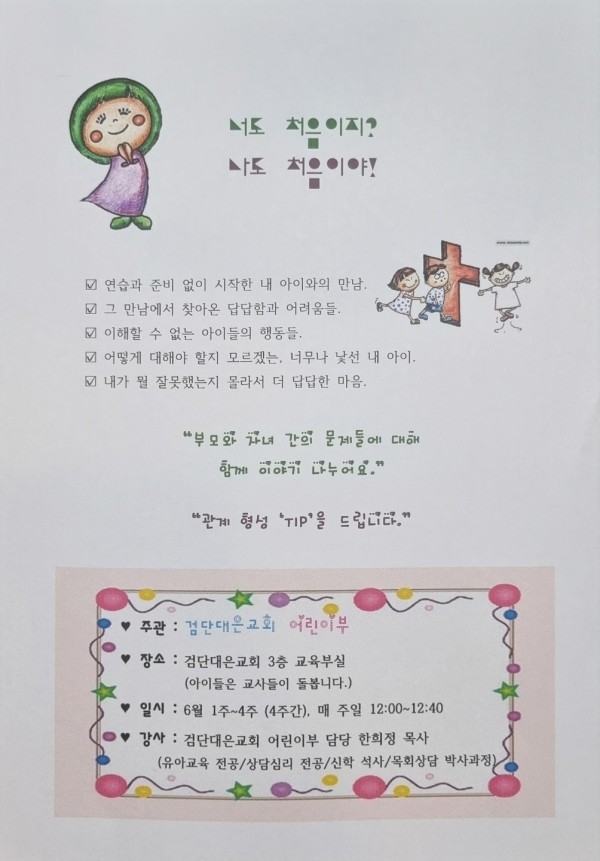 너도 처음이지?
나도 처음이야!
☑ 연습과 준비 없이 시작한 내 아이와의 만남.
☑ 그 만남에서 찾아온 답답함과 어려움들.
☑ 이해할 수 없는 아이들의 행동들.
☑ 어떻게 대해야 할지 모르겠는, 너무나 낯선 내 아이.
☑ 내가 뭘 잘못했는지 몰라서 더 답답한 마음.
"부모와 자녀 간의 문제들에 대해
함께 이야기 나누어요."
"관계 형성 'TIP'을 드립니다."
♥ 주관 : 검단대은교회 어린이부
♥ 장소 : 검단대은교회 3층 교육부실
(아이들은 교사들이 돌봅니다.)
♥ 일시 : 6월 1주~4주 (4주간), 매 주일 12:00~12:40
♥ 강사 : 검단대은교회 어린이부 담당 한희정 목사
(유아교육 전공/상담심리 전공/신학 석사/목회상담 박사과정)